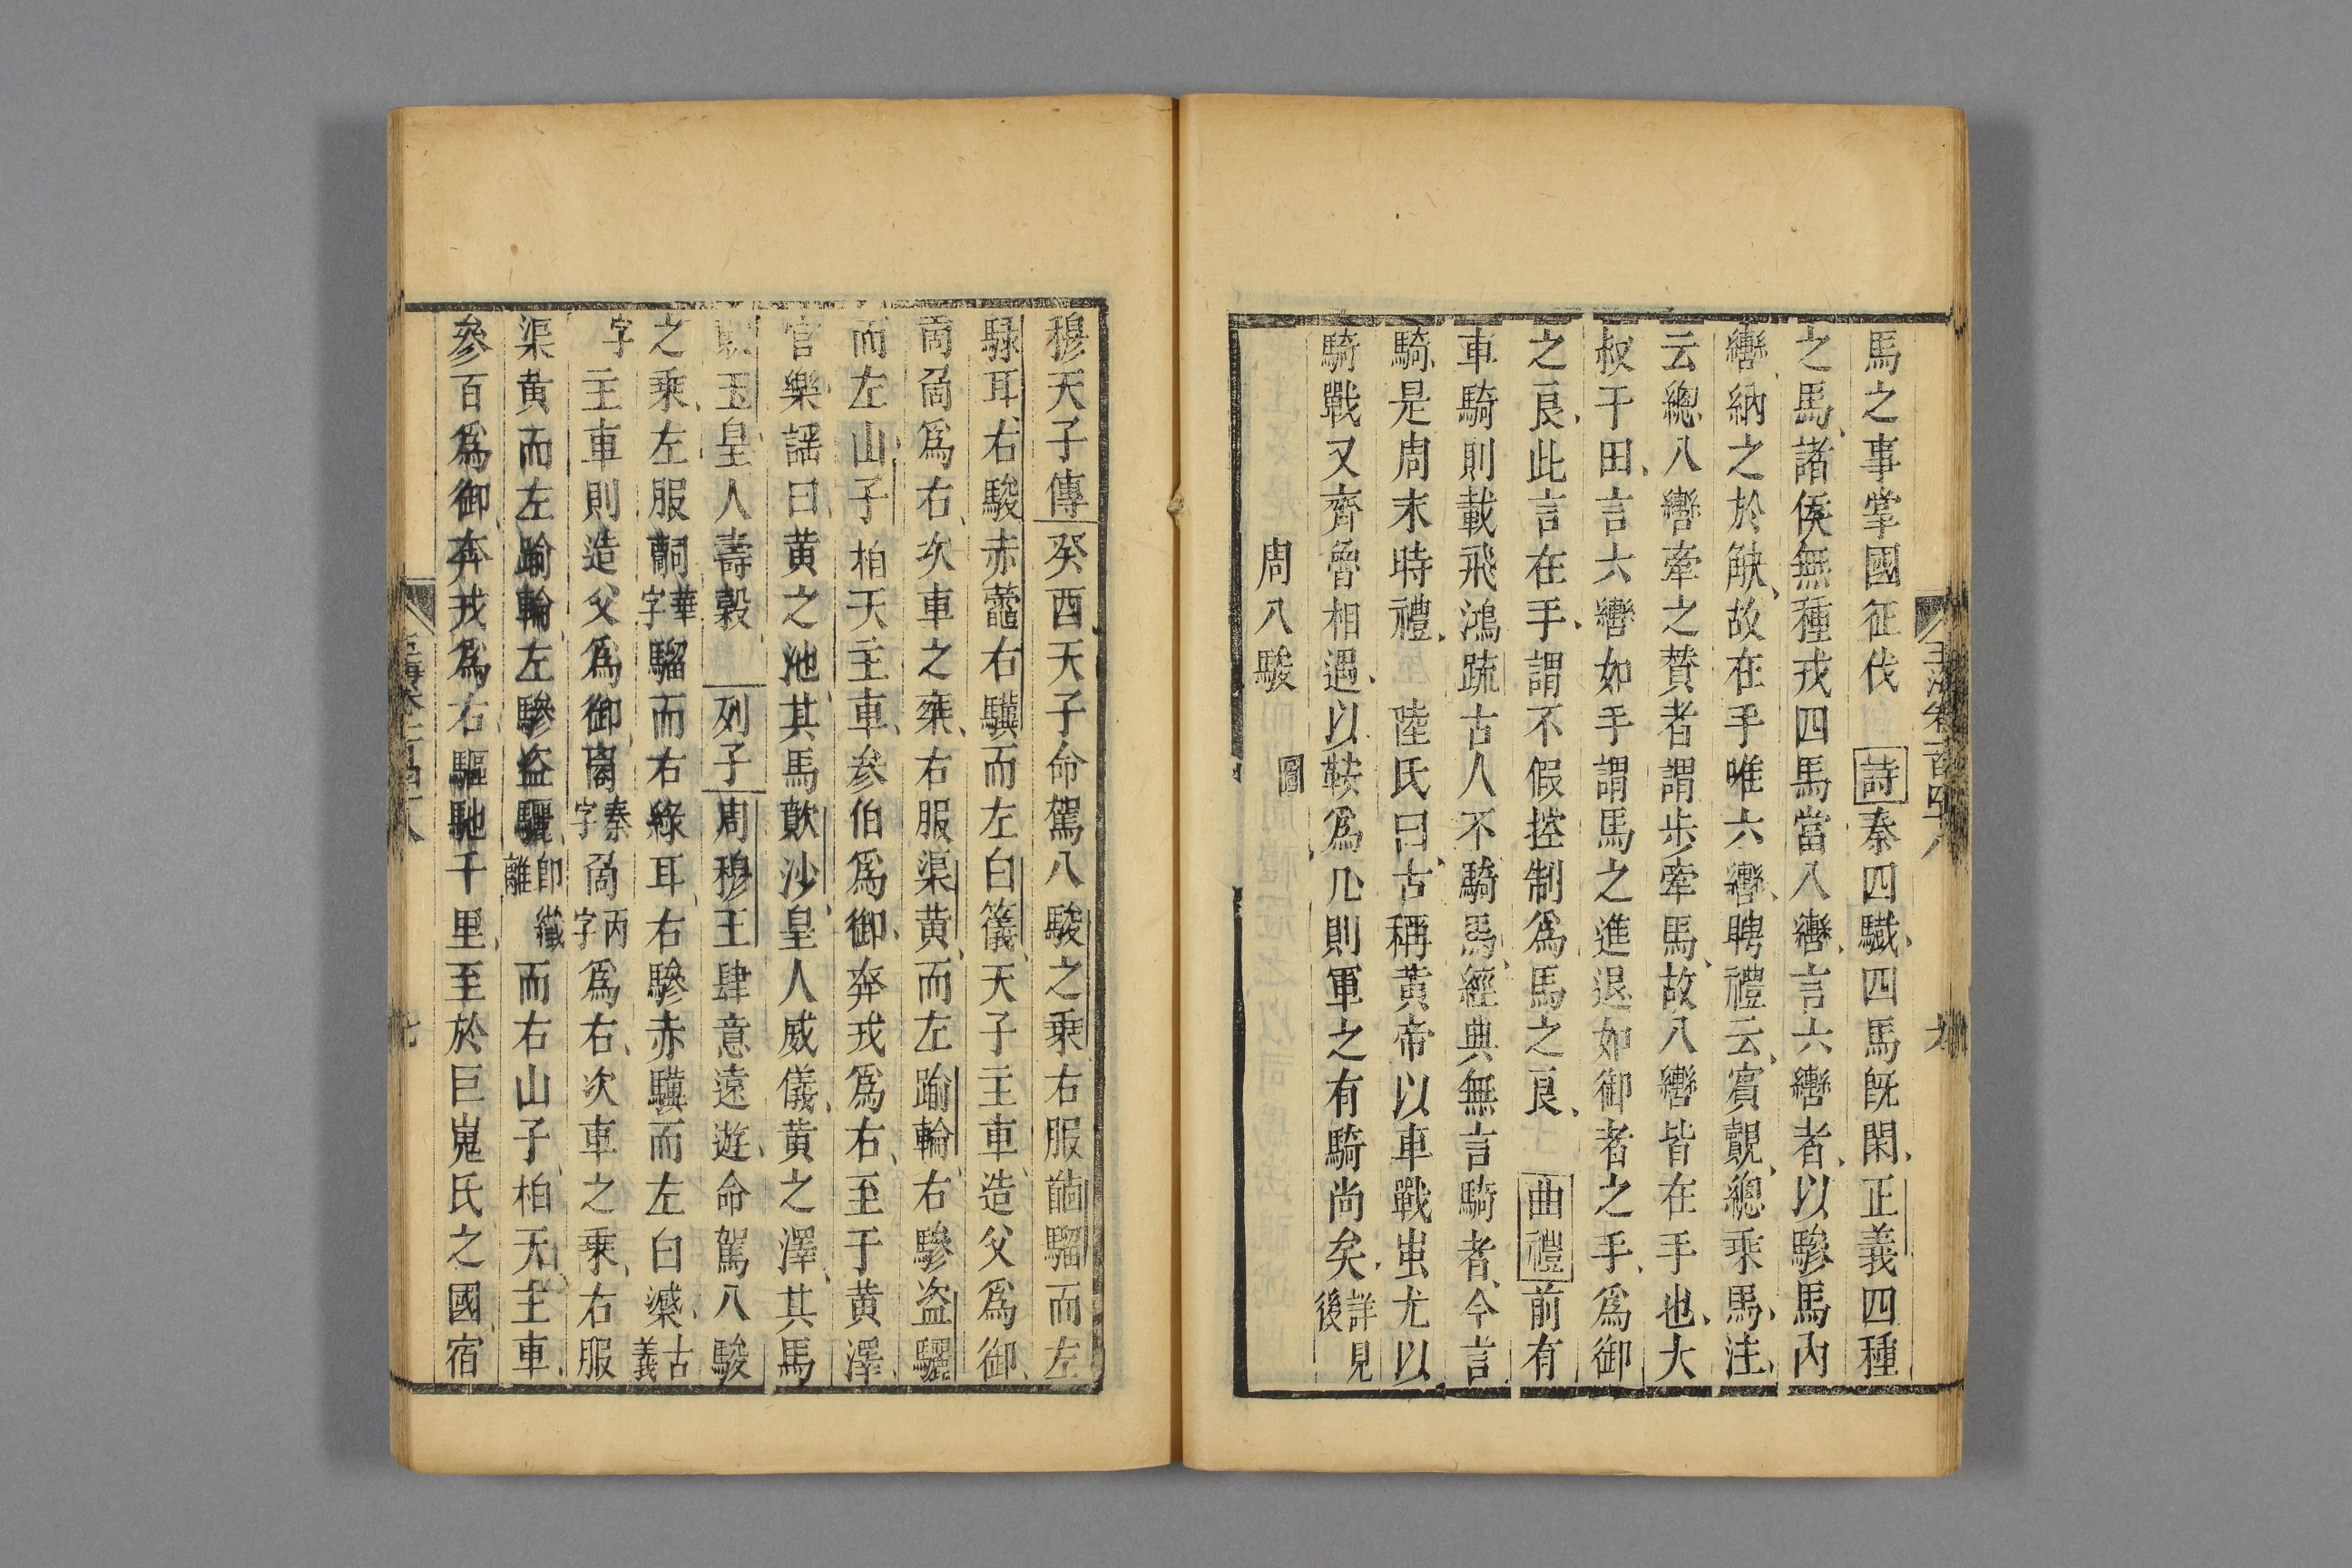 馬之事掌國征伐 詩秦四驖四馬旣閑正義四種
之馬諸侯無種戎四馬當八轡言六轡者以驂馬內
轡納之於觖故在手唯六轡聘禮云賓覿總乘馬注
云總八轡牽之贊者謂步牽馬故八轡皆在手也大
叔于田言六轡如手謂馬之進退如御者之手爲御
之良此言在手謂不假控制爲馬之良 曲禮前有
車騎則載飛鴻疏古人不騎馬經典無言騎者今言
騎是周末時禮 陸氏曰古稱黃帝以車戰蚩尤以
騎戰又齊魯相遇以鞍爲几則軍之有騎尚矣詳見後
周八駿圖
玉海卷一百四十八
穆天子傳癸酉天子命駕八駿之乘右服騮而左
騄耳右驂赤蘎右驥而左白䉾天子主車造父爲御
爲右次車之乘右服渠黃而左踰輪右驂盜驪
而左山子柏夭主車參伯爲御奔戎爲右至于黃澤
官樂謠曰黃之池其馬歕沙皇人威儀黃之澤其馬
歕玉皇人壽穀 列子周穆王肆意遠遊命駕八駿
之乘左服華字騮而右綠耳右驂赤驥而左白㵕古義
字主車則造父爲御泰字丙字爲右次車之乘右服
渠黃而左踰輪左驂盜驪卽纖離而右山子柏夭主車
參百爲御奔戎爲右驅馳千里至於巨嵬氏之國宿